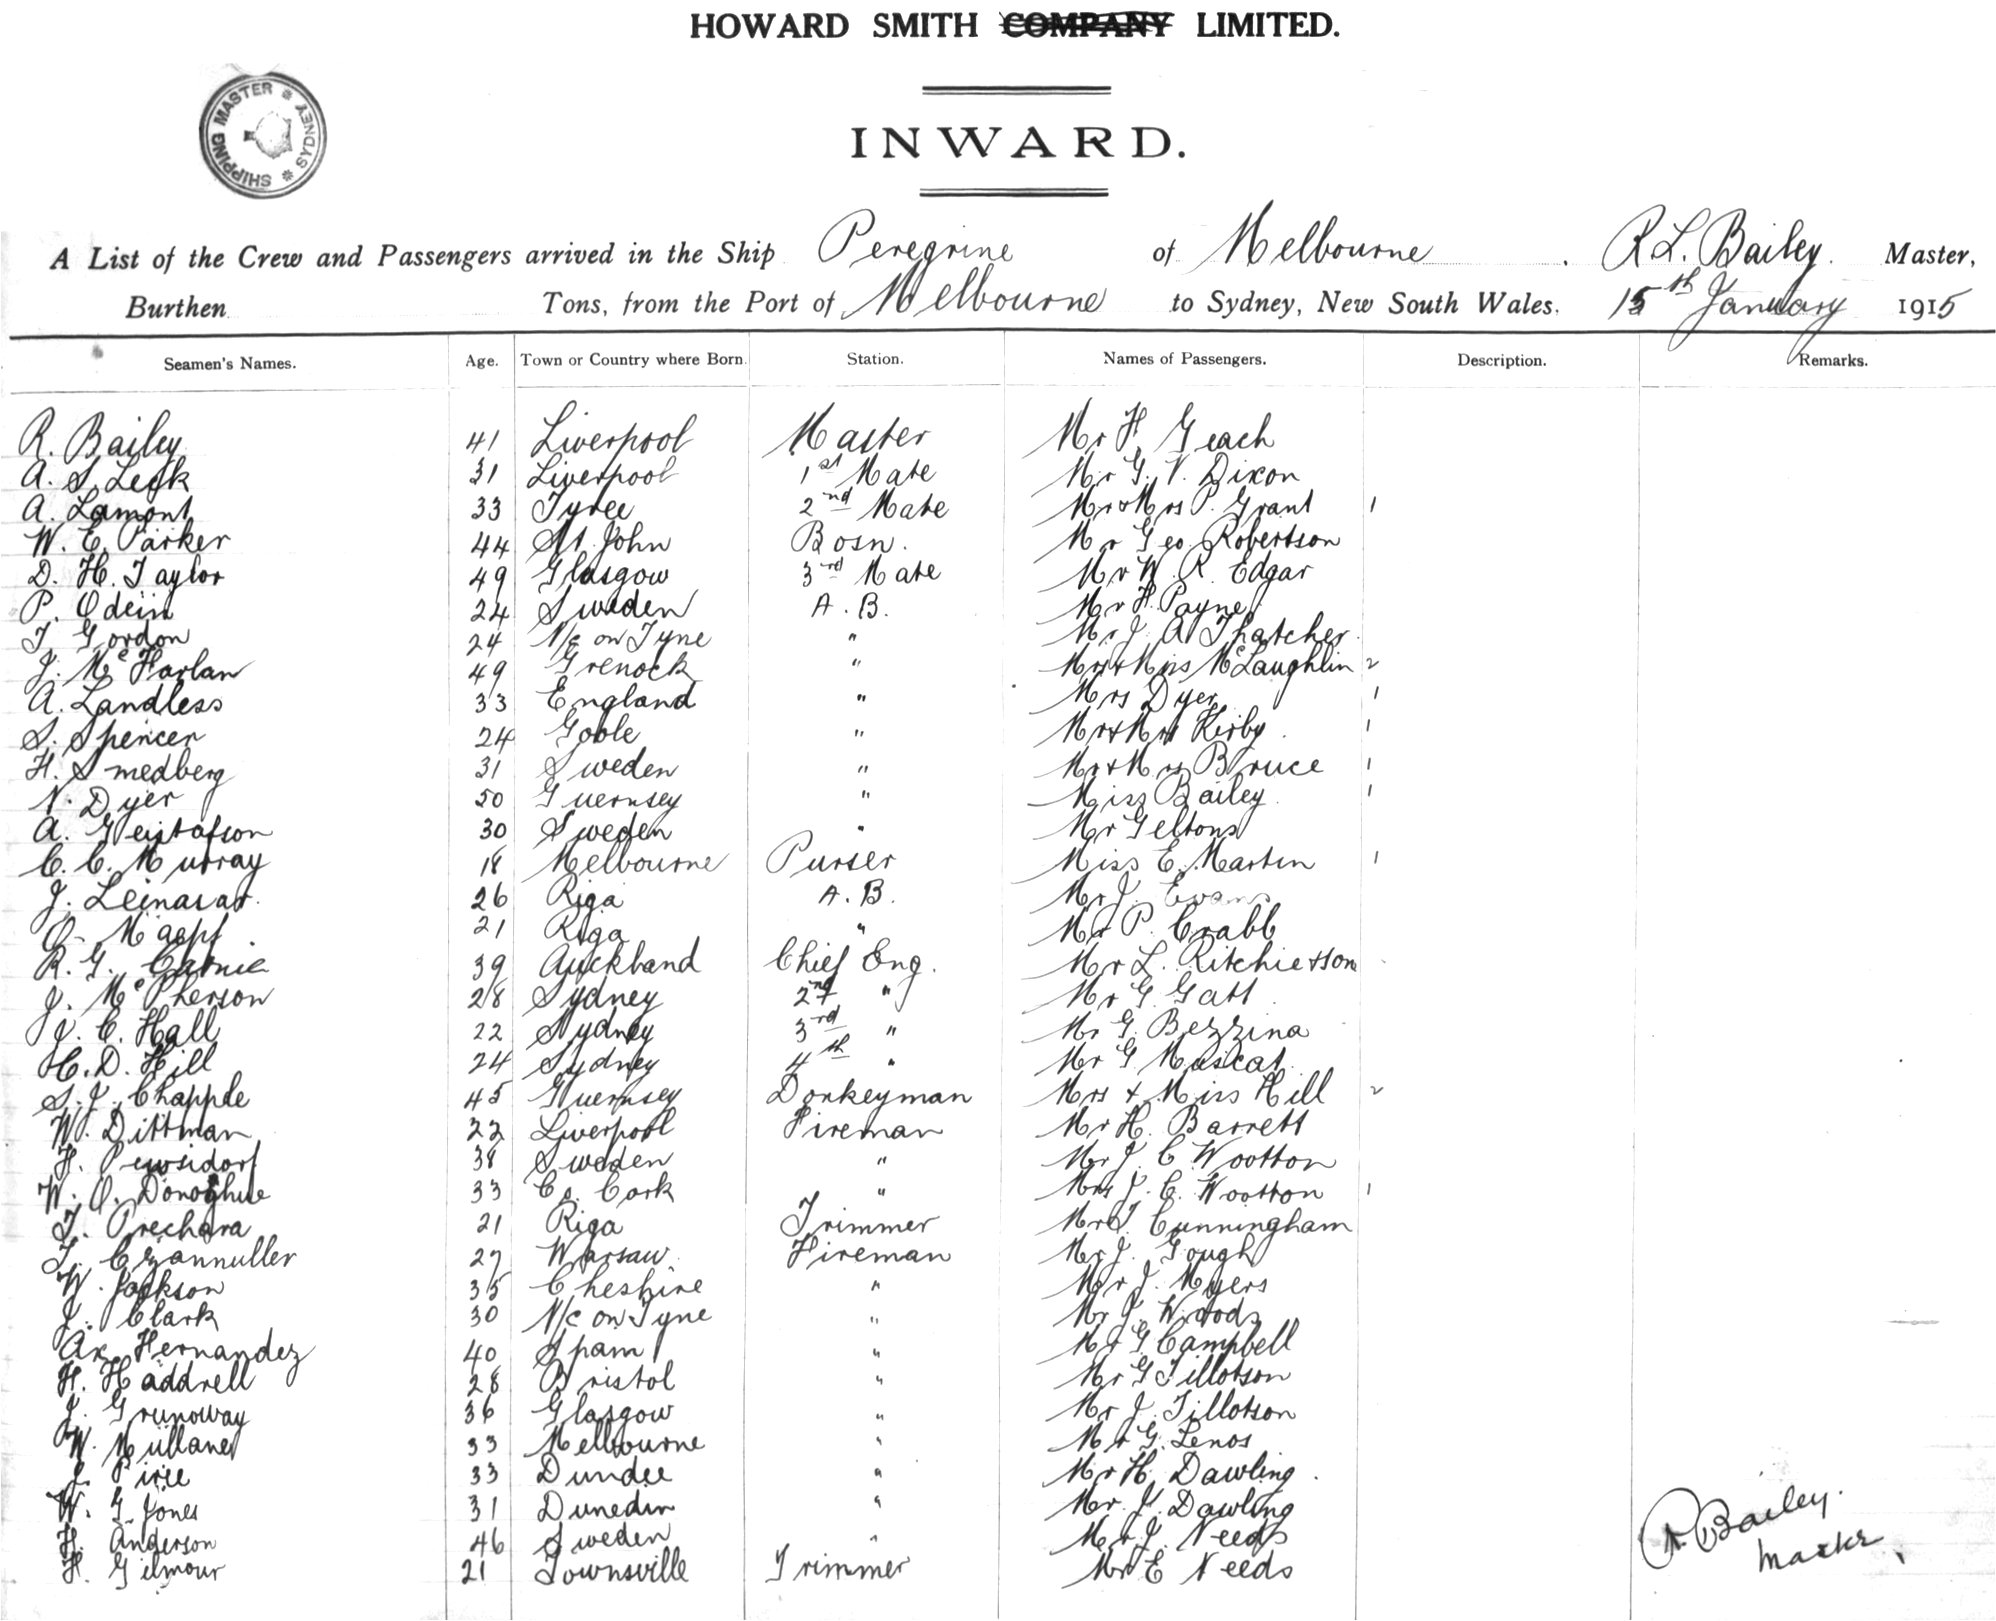 HOWARD SMITH COMPANY LIMITED.
SHIPPING MASTER * SYDNEY *
INWARD.
A List of the Crew and Passengers arrived in the Ship Peregrine of Melbourne. R L. Bailey. Master,
Burthen Tons, from the Port of Melbourne to Sydney, New South Wales. 15th January 1915
Seamen's Names. Age. Town or Country where Born. Station. Names of Passengers. Description. Remarks.
R. Bailey 41 Liverpool Master Mr H Geach
A. S. Leek 31 Liverpool 1st Mate Mr G. V. Dixon
A. Lamont 33 Tyree 2nd Mate Mr & Mrs P. Grant 1
W. E. Parker 44 St. John Bosn. Mr Geo Robertson
D. H. Taylor 49 Glasgow 3rd Mate Mr W. R. Edgar
P. Odein 24 Sweden A. B. Mr H. Payne
T Gordon 24 N/c on Tyne " Mr J. A Thatcher.
J. McFarlan 49 Grenock " Mrs & Miss McLaughlin 2
A. Landless 33 England " Mrs Dyer 1
S. Spencer 24 Goole " Mr & Mrs Kirby. 1
H. Smedberg 31 Sweden " Mr & Mrs Bruce 1
N. Dyer 50 Guernsey " Miss Bailey 1
A. Geistafson 30 Sweden " Mr Geltons
C. C. Murray 18 Melbourne Purser Miss E. Martin 1
J. Leinasar. 26 Riga A. B. Mr J. Evans
O. 21 Riga " Mr P. Crabb
R. G. Carnie 39 Auckband Chief Eng. Mr L. Ritchie & son
J. McPherson 28 Sydney 2nd " Mr G. Gatt
J. C. Hall 22 Sydney 3rd " Mr G. Bezzina
C. D. Hill 24 Sydney 4th " Mr G Muscat
S. J. Chapple 45 Guernsey Donkeyman Mrs & Miss Hill 2
W. Dittman 22 Liverpool Fireman Mr H. Barrett
H. 38 Sweden " Mr J. C Wootton
W. O. Donoghue 33 Co. Cork " Mrs J. C. Wootton 1
T. Prechara 21 Riga Trimmer Mr T. Cunningham
T. Czannuller 27 Warsaw Fireman Mr J. Gough
W. Jackson 35 Cheshire " Mr J. Myers
J. Clark 30 N/c on Tyne " Mr J. Woods
Ax Hernandez 40 Spain " Mr G Campbell
H. Haddrell 28 Bristol " Mr G Tillotson
J. Grunoway 36 Glasgow " Mr J. Tillotson
W. Mullane 33 Melbourne " Mr G. Lenos
J. Pirie 33 Dundee " Mr H. Dawling.
W. G. Jones 31 Dunedin " Mr. J. Dawling
H. Anderson 46 Sweden " Mr J. Needs
H. Gilmour 21 Townsville Trimmer Mr E Needs
R. Bailey.
Master